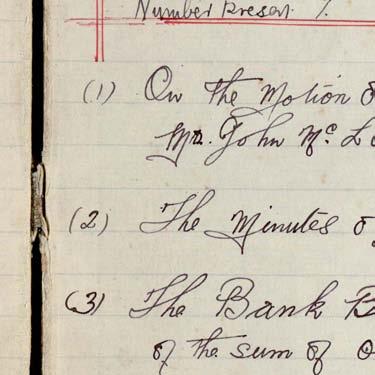 Number Present 7.
(1) On the Motion o
Mr. John Mc L
(2) The Minutes o
(3) The Bank B
of the sum of O